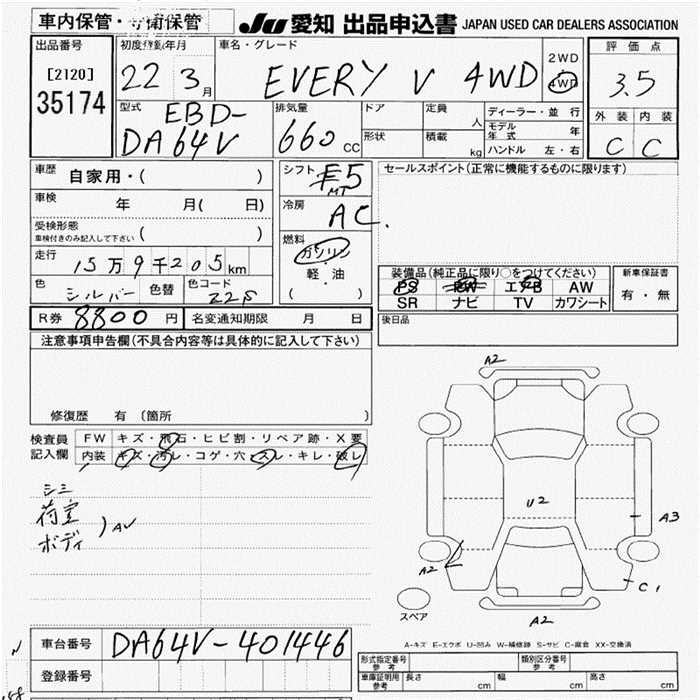 車内保管・
JU 愛知 出品申込書 JAPAN USED CAR DEALERS ASSOCIATION
出品番号
[2120]
35174
初度登録年月
22 3月
車名・グレード
EVERY V 4WD
2WD
4WD
評価点
3.5
外装 内装
C C
型式
EBD-
DA64V
排気量
660 CC
ドア
形状
定員 人
積載 kg
ディーラー・並行
モデル年式 年
ハンドル 左・右
車歴
自家用・( )
車検
年 月( 日)
受検形態
車検付きのみ記入して下さい ( )
走行
15万9千205km
色
シルバー
色替
色コード
Z2S
シフト
F5
MT
冷房
AC.
燃料
ガソリン
・
軽・油
( )
セールスポイント(正常に機能するものに限ります)
装備品(純正品に限り○をつけてください)
PS PW エアB AW
SR ナビ TV カワシート
新車保証書
有・無
R券 8800円
名変通知期限 月 日
後日品
注意事項申告欄(不具合内容等は具体的に記入して下さい)
修復歴 有(箇所 )
検査員
記入欄
FW キズ・飛石・ヒビ割・リペア跡・X要
内装 キズ・汚レ・コゲ・穴・スレ・キレ・破レ
シミ
荷室
ボディ
)AV
A2
U2
A3
A2
C1
A2
スペア
A-キズ E-エクボ U-凹み W-補修跡 S-サビ C-腐食 XX-交換済
車台番号
DA64V-401446
登録番号
形式指定番号
参考
類別区分番号
参考
車庫証明用
参考
長さ cm
幅 cm
高さ cm